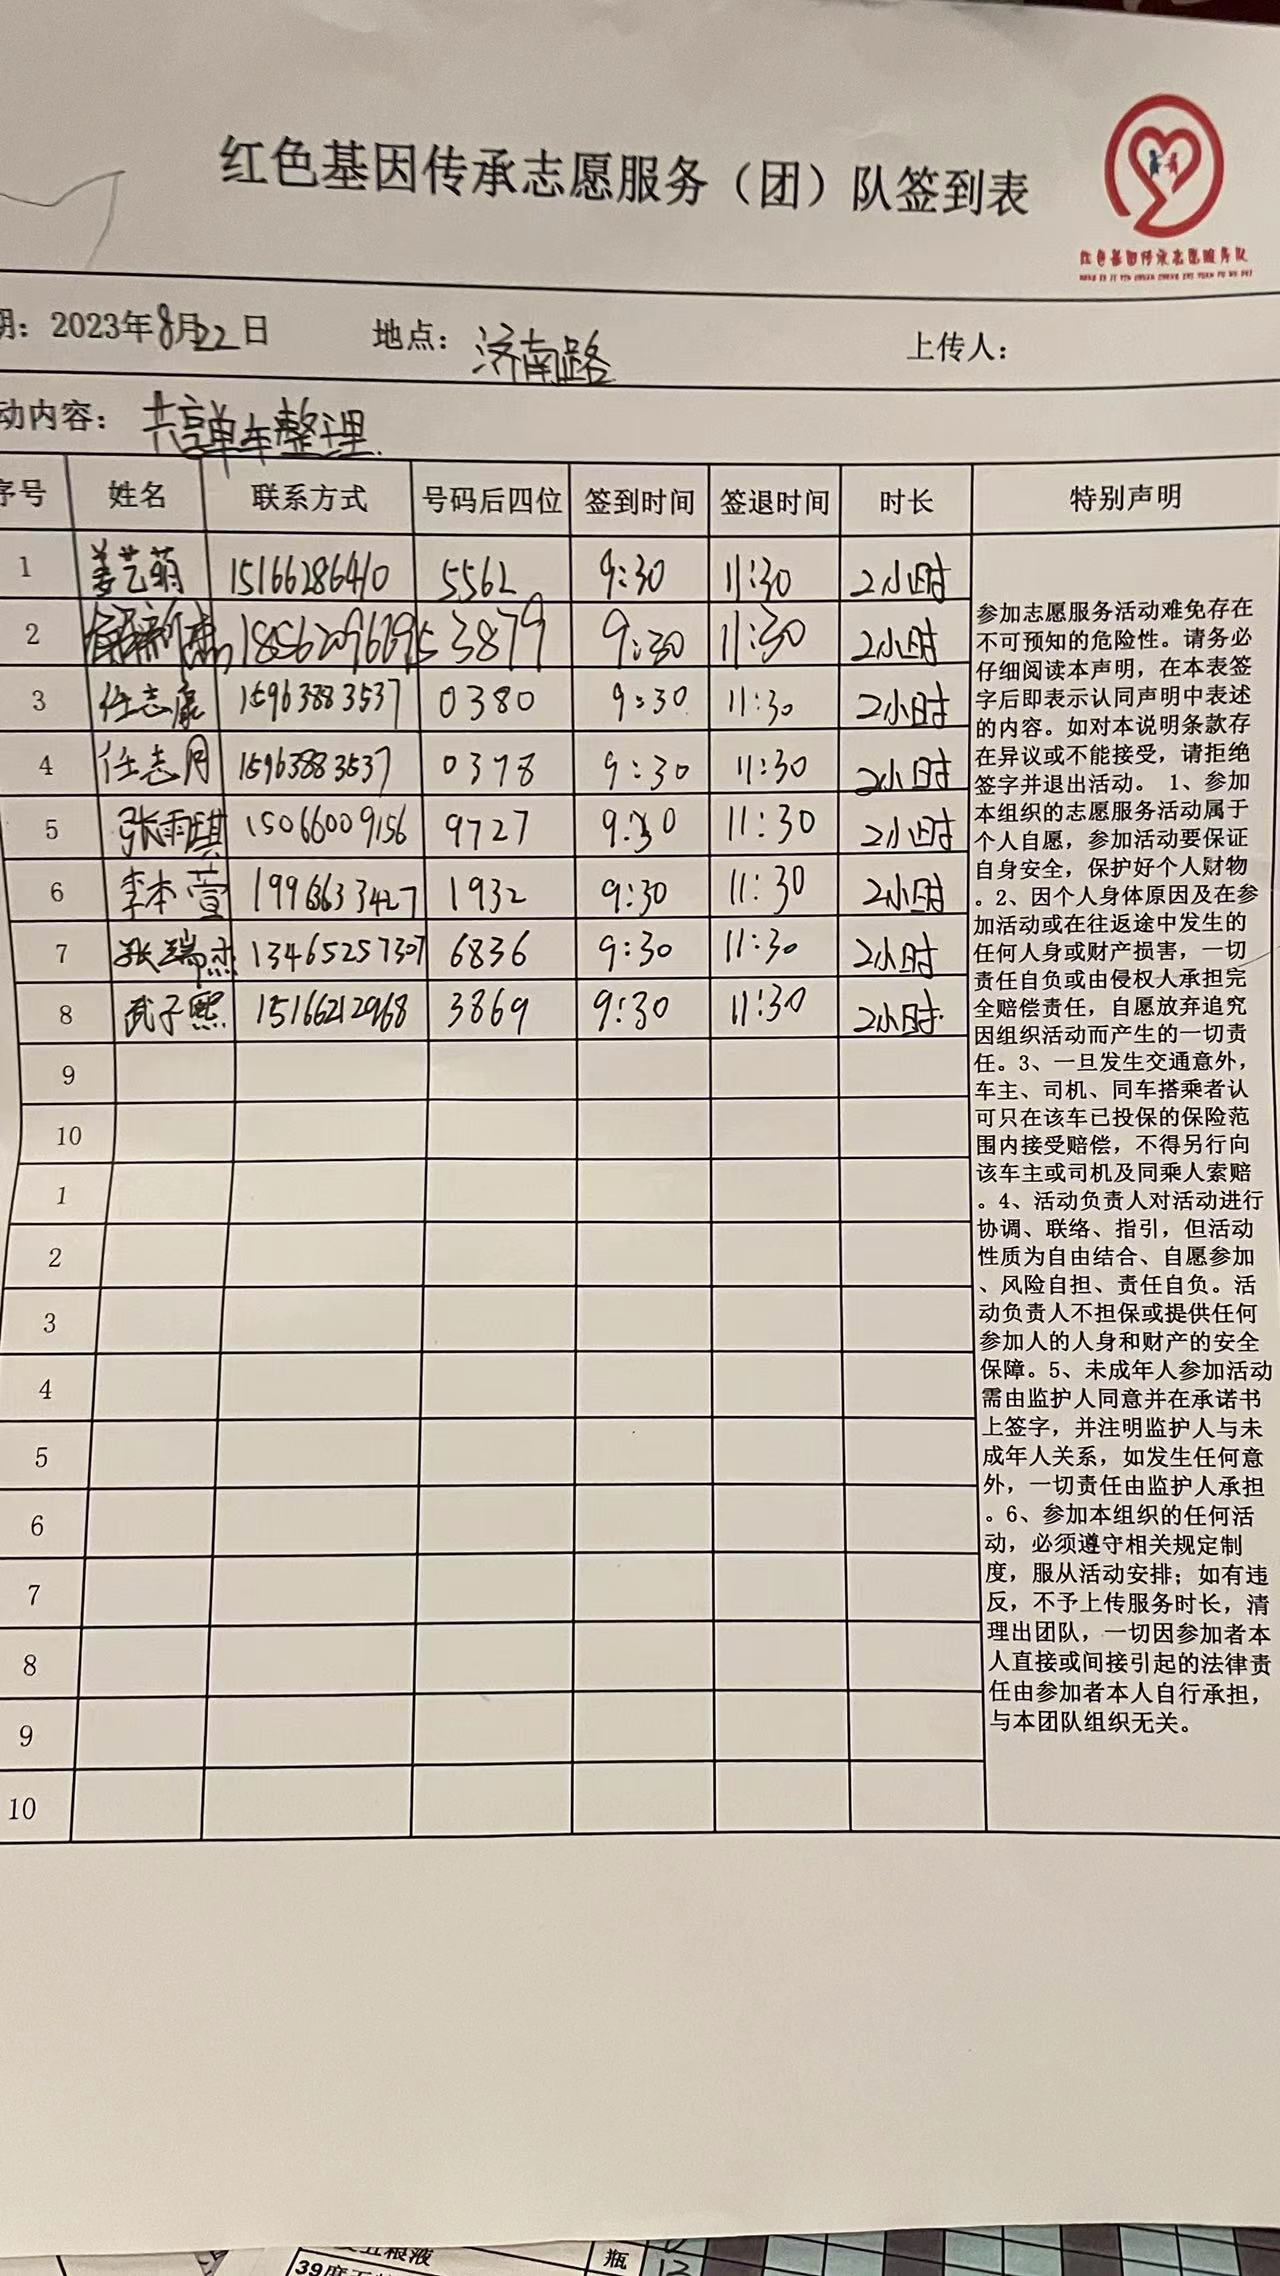 红色基因传承志愿服务（团）队签到表
红色基因传承志愿服务队
期：2023年8月22日 地点：济南路 上传人：
动内容：共享单车整理.
序号 姓名 联系方式 号码后四位 签到时间 签退时间 时长 特别声明
1 姜艺萌 15166286410 5562 9:30 11:30 2小时
2 3879 9:30 11:30 2小时
3 任志康 15963883537 0380 9:30 11:30 2小时
4 任志月 15963883537 0378 9:30 11:30 2小时
5 张雨琪 15066009156 9727 9:30 11:30 2小时
6 李本萱 1932 9:30 11:30 2小时
7 张瑞杰 13465257307 6836 9:30 11:30 2小时
8 武子熙 15166212968 3869 9:30 11:30 2小时
9
10
1
2
3
4
5
6
7
8
9
10
参加志愿服务活动难免存在
不可预知的危险性。请务必
仔细阅读本声明，在本表签
字后即表示认同声明中表述
的内容。如对本说明条款存
在异议或不能接受，请拒绝
签字并退出活动。 1、参加
本组织的志愿服务活动属于
个人自愿，参加活动要保证
自身安全，保护好个人财物
。2、因个人身体原因及在参
加活动或在往返途中发生的
任何人身或财产损害，一切
责任自负或由侵权人承担完
全赔偿责任，自愿放弃追究
因组织活动而产生的一切责
任。3、一旦发生交通意外，
车主、司机、同车搭乘者认
可只在该车已投保的保险范
围内接受赔偿，不得另行向
该车主或司机及同乘人索赔
。4、活动负责人对活动进行
协调、联络、指引，但活动
性质为自由结合、自愿参加
、风险自担、责任自负。活
动负责人不担保或提供任何
参加人的人身和财产的安全
保障。5、未成年人参加活动
需由监护人同意并在承诺书
上签字，并注明监护人与未
成年人关系，如发生任何意
外，一切责任由监护人承担
。6、参加本组织的任何活
动，必须遵守相关规定制
度，服从活动安排；如有违
反，不予上传服务时长，清
理出团队，一切因参加者本
人直接或间接引起的法律责
任由参加者本人自行承担，
与本团队组织无关。
五粮液 瓶
39度 12